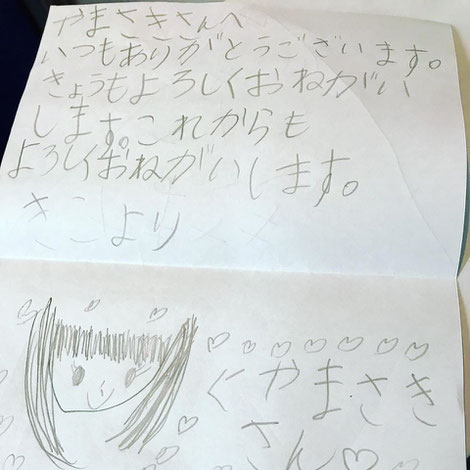 やまさきさんへ
いつもありがとうございます。
きょうもよろしくおねがい
します。これからも
よろしくおねがいします。
きこより
くやまさき
さん♡